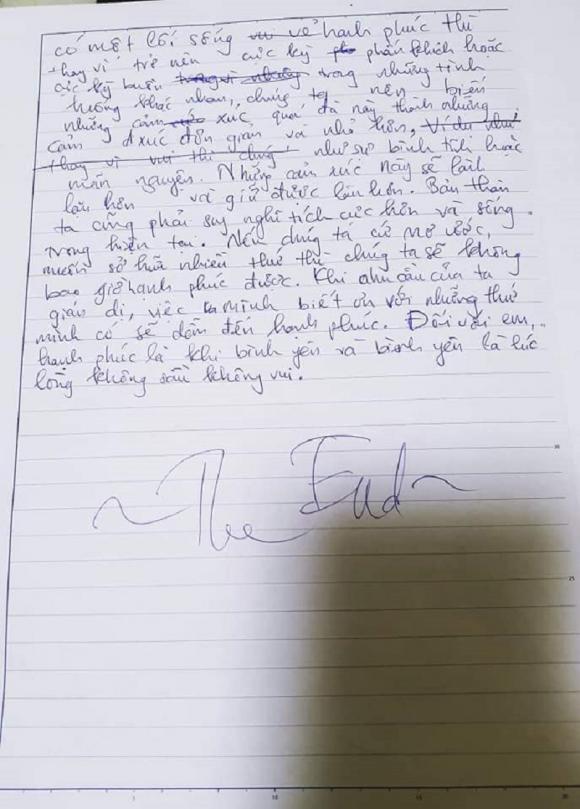 có một lối sống về hạnh phúc thì
thay vì trở nên cực kỳ phấn khích hoặc
cực kỳ buồn trong những tình
huống khác nhau, chúng ta nên biến
những cảm xúc quá đà này thành những
cảm xúc đơn giản và nhỏ hơn, ví dụ như
thay vì vui thì chúng như sự bình tĩnh hoặc
mãn nguyện. Những cảm xúc này sẽ
lâu hơn và giữ được lâu hơn. Bản thân
ta cũng phải suy nghĩ tích cực hơn và sống
trong hiện tại. Nếu chúng ta cứ mơ ước,
muốn sở hữu nhiều thứ thì chúng ta sẽ không
bao giờ hạnh phúc được. Khi nhu cầu của ta
giản dị, việc mình biết ơn với những thứ
mình có sẽ dẫn đến hạnh phúc. Đối với em,
hạnh phúc là khi bình yên và bình yên là lúc
lòng không sầu không vui.
~ The End ~
30
25
1
10
15
20